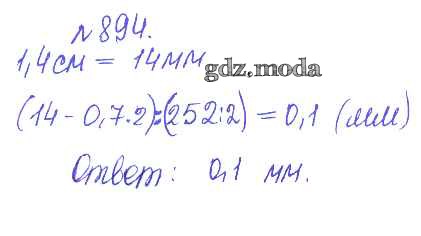 № 894.
1,4 см = 14 мм
gdz.moda
(14 - 0,7·2):(252:2) = 0,1 (мм)
Ответ: 0,1 мм.